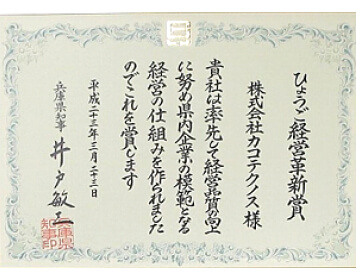 ひょうご経営革新賞
株式会社カコテクノス様
貴社は率先して経営品質の向上
に努め県内企業の模範となる
経営の仕組みを作られました
のでこれを賞します
平成二十三年三月二十三日
兵庫県知事 井戸敏三